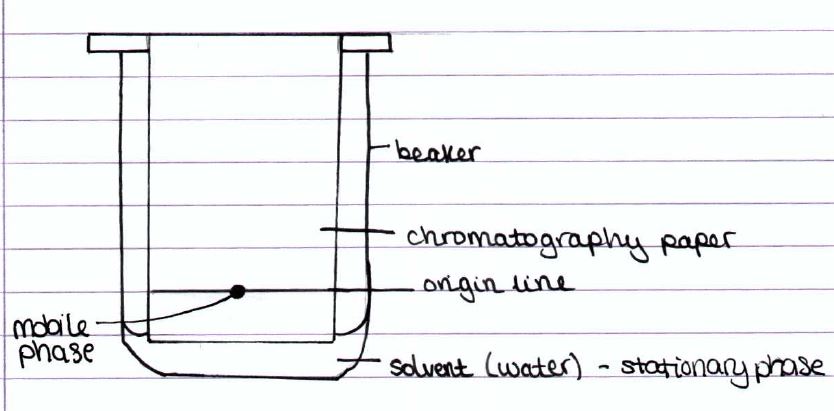 beaker
chromatography paper
origin line
mobile
phase
solvent (water) - stationary phase